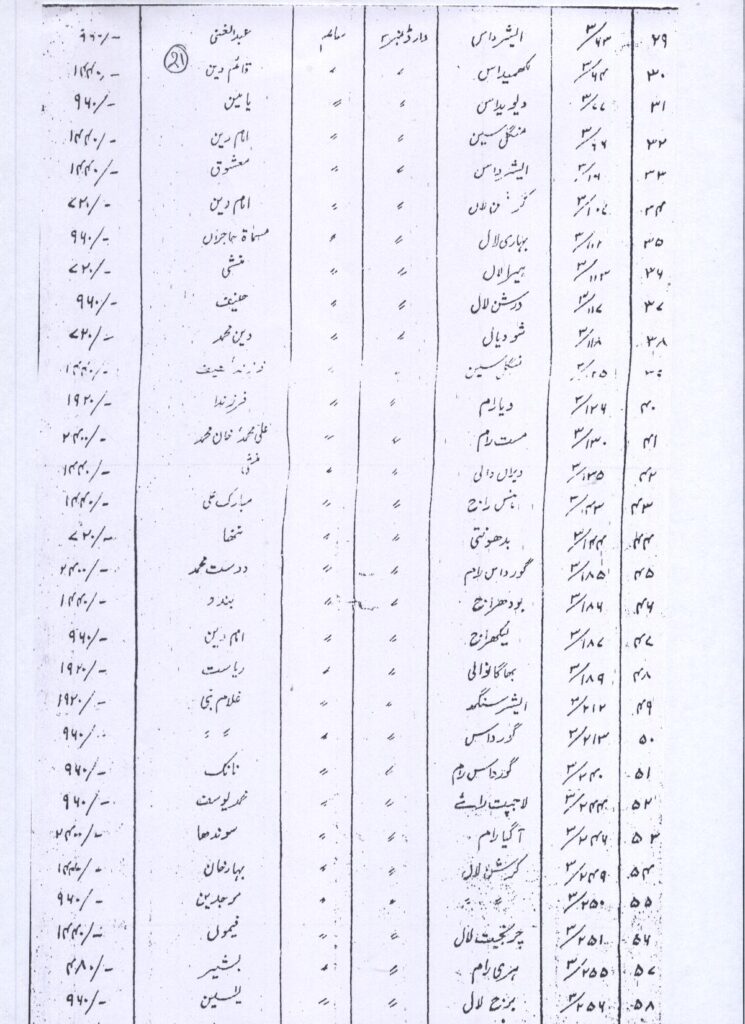 ۲۹ ۳/۶۳ ایشرداس وارڈنمبر۳ سالم عبدالغنی ۹۶۰/-
۳۰ ۳/۶۴ کھمیداس 〃 〃 قائم دین ۱۴۴۰/-
21
۳۱ ۳/۷۷ دیویداس 〃 〃 یامین ۹۶۰/-
۳۲ ۳/۶۶ منگلی سین 〃 〃 امام دین ۱۴۴۰/-
۳۳ ۳/۱۶ ایشرداس 〃 〃 معشوق ۱۴۴۰/-
۳۴ لال 〃 〃 امام دین ۷۲۰/-
۳۵ ۳/۱۰۲ بہاری لال 〃 〃 مسماۃ ہاجراں ۹۶۰/-
۳۶ ۳/۱۱۳ ہیرا لال 〃 〃 منشی ۷۲۰/-
۳۷ ۳/۱۱۷ درشن لال 〃 〃 حنیف ۹۶۰/-
۳۸ ۳/۱۱۸ شودیال 〃 〃 دین محمد ۷۲۰/-
۳۹ ۳/۲۵ منگلی سین 〃 〃 حنیف ۱۴۴۰/-
۴۰ ۳/۱۲۶ دیارام 〃 〃 فرزندا ۱۹۲۰/-
۴۱ ۳/۱۳۰ مست رام 〃 〃 علی محمد خان محمد ۲۴۰۰/-
۴۲ ۳/۱۳۵ ویراں والی 〃 〃 منشی ۱۴۴۰/-
۴۳ ۳/۴۳ ہنس راج 〃 〃 مبارک علی ۱۴۴۰/-
۴۴ ۳/۱۴۴ بدھونتی 〃 〃 ننھا ۷۲۰/-
۴۵ ۳/۱۸۵ گورداس رام 〃 〃 دوست محمد ۲۴۰۰/-
۴۶ ۳/۱۸۶ بودھراج 〃 〃 بندو ۱۴۴۰/-
۴۷ ۳/۱۸۷ لیکھراج 〃 〃 امام دین ۹۶۰/-
۴۸ ۳/۱۸۹ بھاگانوالی 〃 〃 ریاست ۱۹۲۰/-
۴۹ ۳/۲۱۲ ایشرسنگھ 〃 〃 غلام نبی ۱۹۲۰/-
۵۰ ۳/۲۱۳ گورداس 〃 〃 〃 〃 ۹۶۰/-
۵۱ ۳/۲۴۰ گورداس رام 〃 〃 نانک ۹۶۰/-
۵۲ ۳/۲۴۴ لاجپت رائے 〃 〃 محمد یوسف ۹۶۰/-
۵۳ ۳/۲۴۶ آگیارام 〃 〃 سوندھا ۲۴۰۰/-
۵۴ ۳/۲۴۹ کرشن لال 〃 〃 بہارخان ۱۴۴۰/-
۵۵ ۳/۲۵۰ 〃 〃 〃 〃 ۹۶۰/-
۵۶ ۳/۲۵۱ چرنجیت لال 〃 〃 فیمول ۱۴۴۰/-
۵۷ ۳/۲۵۵ ہری رام 〃 〃 بشیر ۴۸۰/-
۵۸ ۳/۲۵۶ برج لال 〃 〃 یٰسین ۹۶۰/-